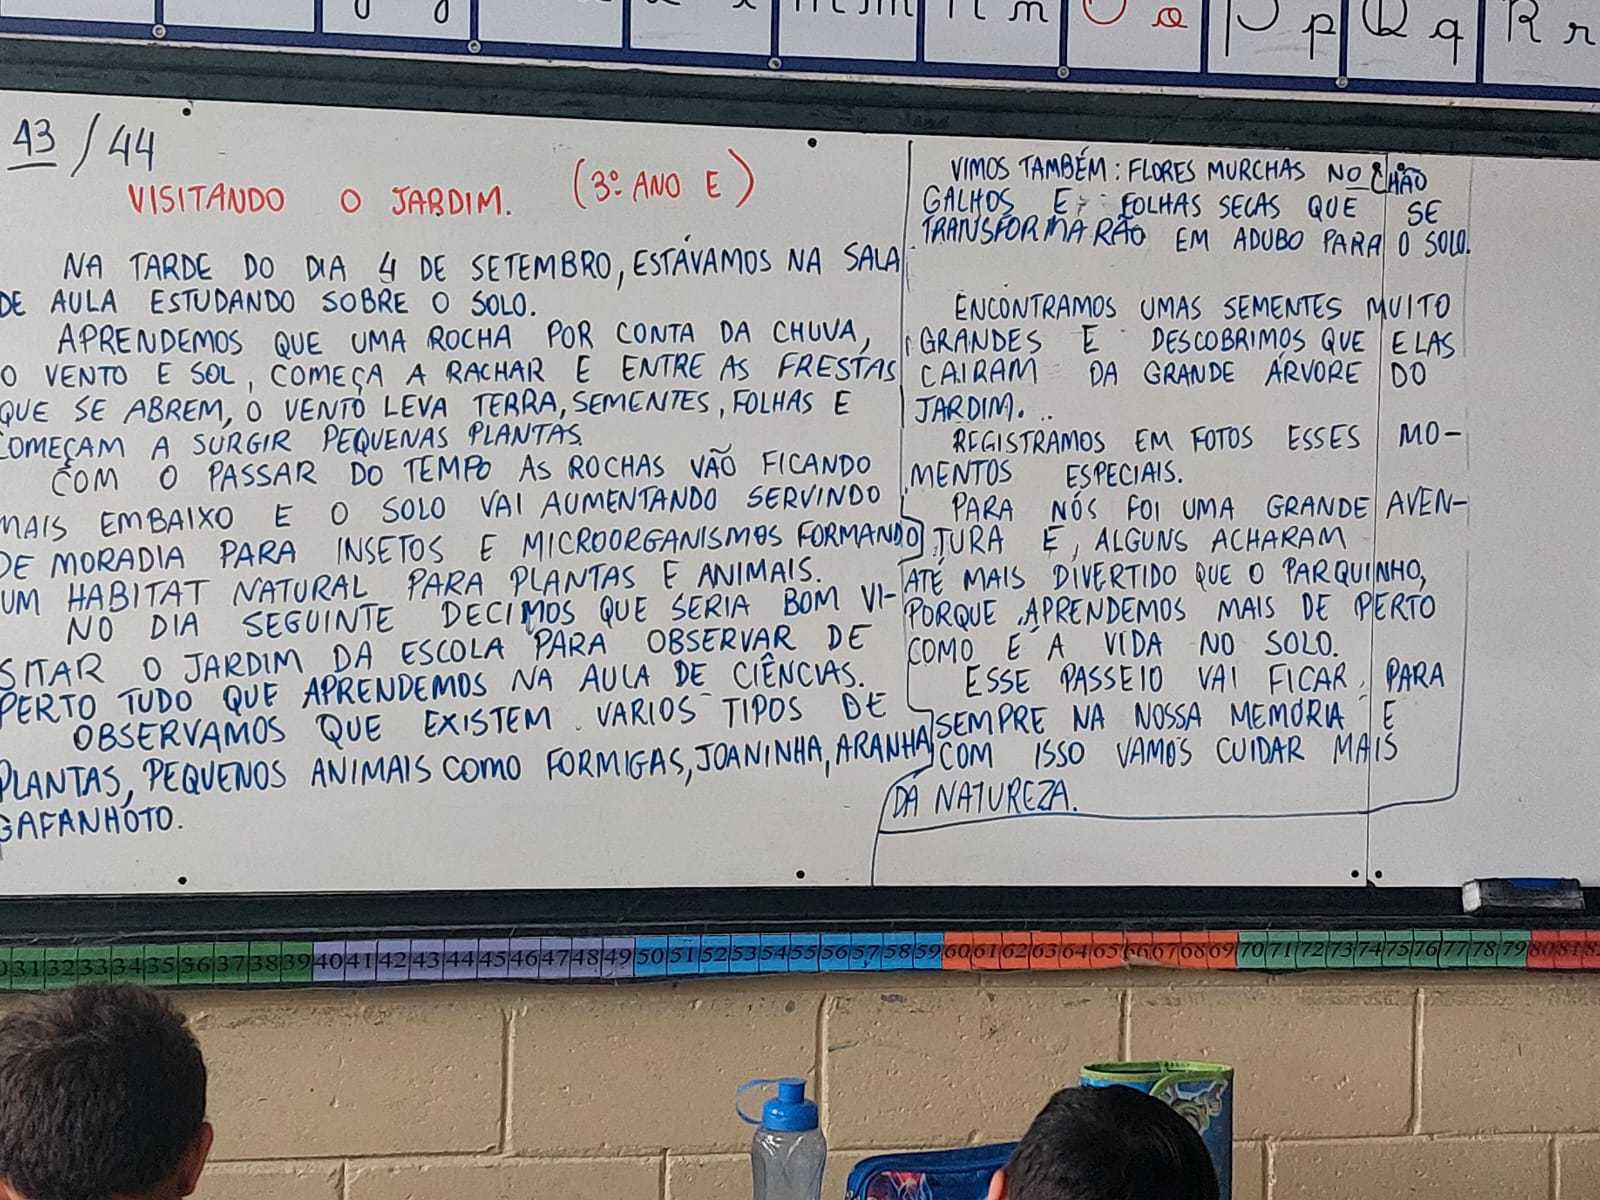 g g
m m
n n
O o
P p
Q q
R r
43 / 44
VISITANDO O JARDIM. (3º ANO E)
NA TARDE DO DIA 4 DE SETEMBRO, ESTÁVAMOS NA SALA
DE AULA ESTUDANDO SOBRE O SOLO.
APRENDEMOS QUE UMA ROCHA POR CONTA DA CHUVA,
O VENTO E SOL, COMEÇA A RACHAR E ENTRE AS FRESTAS
QUE SE ABREM, O VENTO LEVA TERRA, SEMENTES, FOLHAS E
COMEÇAM A SURGIR PEQUENAS PLANTAS.
COM O PASSAR DO TEMPO AS ROCHAS VÃO FICANDO
MAIS EMBAIXO E O SOLO VAI AUMENTANDO SERVINDO
DE MORADIA PARA INSETOS E MICROORGANISMOS FORMANDO
UM HABITAT NATURAL PARA PLANTAS E ANIMAIS.
NO DIA SEGUINTE DECIMOS QUE SERIA BOM VI-
SITAR O JARDIM DA ESCOLA PARA OBSERVAR DE
PERTO TUDO QUE APRENDEMOS NA AULA DE CIÊNCIAS.
OBSERVAMOS QUE EXISTEM VARIOS TIPOS DE
PLANTAS, PEQUENOS ANIMAIS COMO FORMIGAS, JOANINHA, ARANHA
GAFANHOTO.
VIMOS TAMBÉM: FLORES MURCHAS NO CHÃO
GALHOS E FOLHAS SECAS QUE SE
TRANSFORMARÃO EM ADUBO PARA O SOLO.
ENCONTRAMOS UMAS SEMENTES MUITO
GRANDES E DESCOBRIMOS QUE ELAS
CAIRAM DA GRANDE ÁRVORE DO
JARDIM.
REGISTRAMOS EM FOTOS ESSES MO-
MENTOS ESPECIAIS.
PARA NÓS FOI UMA GRANDE AVEN-
TURA E, ALGUNS ACHARAM
ATÉ MAIS DIVERTIDO QUE O PARQUINHO,
PORQUE APRENDEMOS MAIS DE PERTO
COMO É A VIDA NO SOLO.
ESSE PASSEIO VAI FICAR PARA
SEMPRE NA NOSSA MEMÓRIA E
COM ISSO VAMOS CUIDAR MAIS
DA NATUREZA.
31 32 33 34 35 36 37 38 39 40 41 42 43 44 45 46 47 48 49 50 51 52 53 54 55 56 57 58 59 60 61 62 63 64 65 66 67 68 69 70 71 72 73 74 75 76 77 78 79 80 81